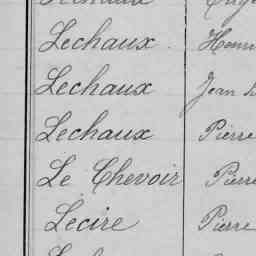 Lechaux Henri
Lechaux Jean
Lechaux Pierre
Le Chevoir Pierre
Lécire Pierre